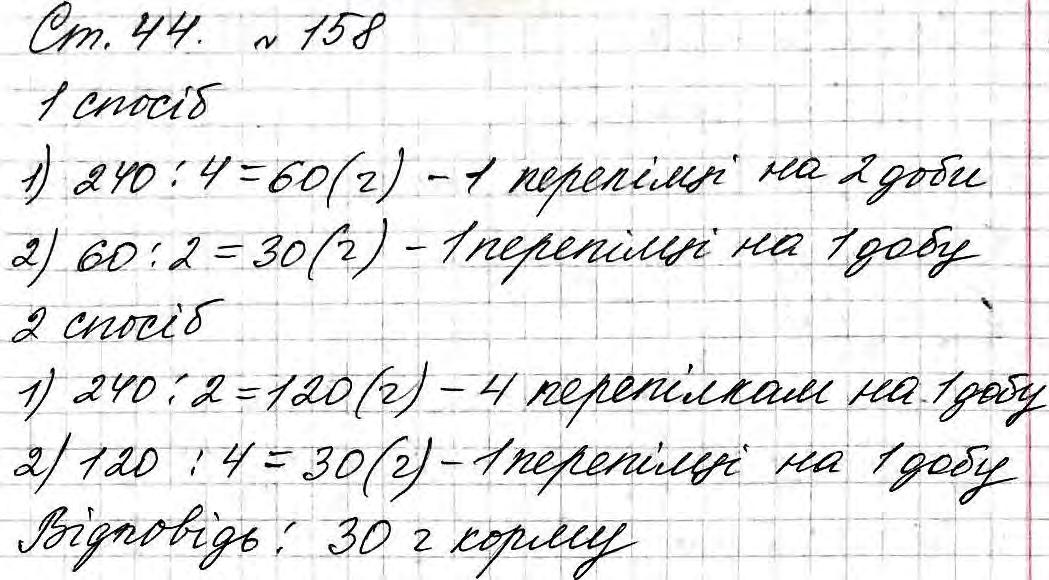 Ст. 44. № 158
1 спосіб
1) 240 : 4 = 60 (г) – 1 перепілці на 2 доби
2) 60 : 2 = 30 (г) – 1 перепілці на 1 добу
2 спосіб
1) 240 : 2 = 120 (г) – 4 перепілкам на 1 добу
2) 120 : 4 = 30 (г) – 1 перепілці на 1 добу
Відповідь : 30 г корму